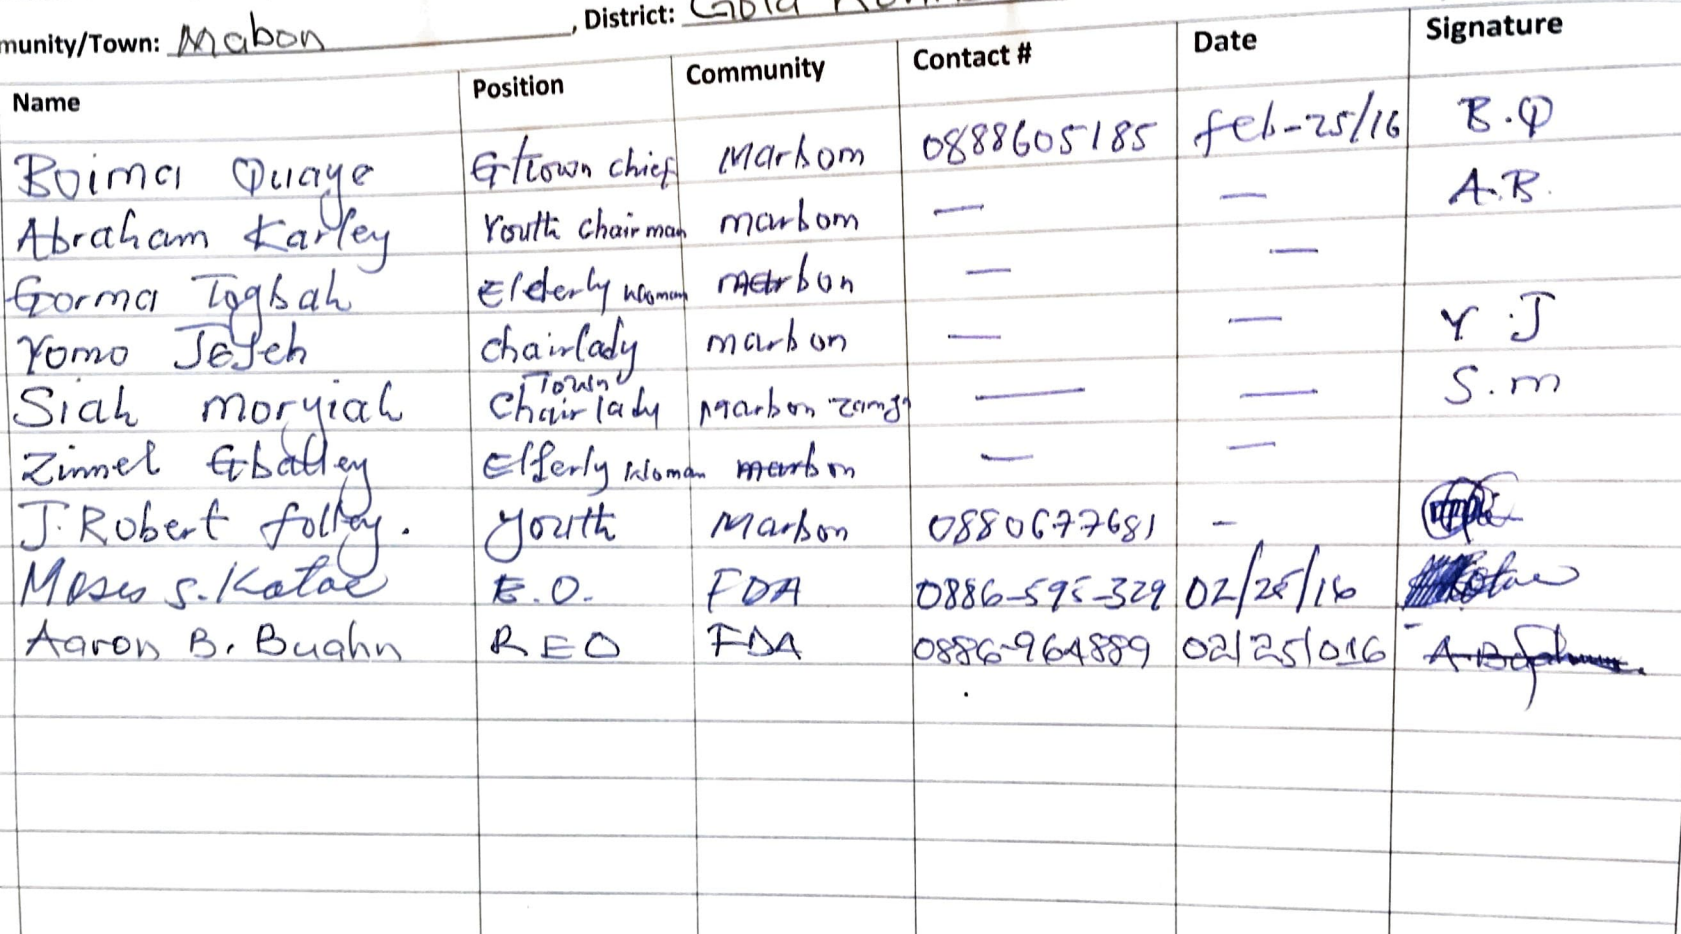 munity/Town: Mabon, District: Gola
Name Position Community Contact # Date Signature
Boima Quaye G/town chief Marbom 0888605185 feb-25/16 B.Q
Abraham Karley Youth Chairman marbom — — A.B.
Gorma Togbah Elderly woman marbon — —
Yomo Jeseh chairlady marbon — — Y.J
Siah moryiah Town Chairlady Marbon — — S.m
Zinnel Gballey Elferly woman marbon — —
J. Robert folley. youth Marbon 0880677681 -
Moses S. Kotae E.O. FDA 0886-595-329 02/25/16
Aaron B. Buahn REO FDA 0886-964889 02/25/016